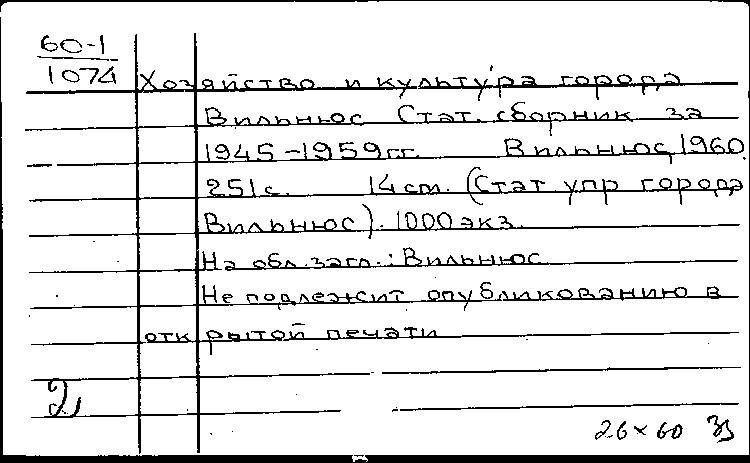 60-1
1074
Хозяйство и культура города
Вильнюс Стат. сборник за
1945-1959гг. Вильнюс, 1960.
251с. 14 см. (Стат упр города
Вильнюс). 1000 экз.
На обл. загл.: Вильнюс
Не подлежит опубликованию в
открытой печати
2
26×60